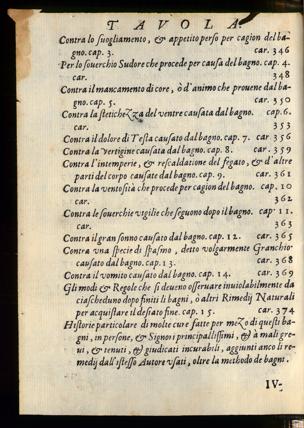 TAVOLA
Contra lo suogliamento, & appetito perso per cagion del ba-
gno. cap. 3. car. 346
Per lo souerchio Sudore che procede per causa del bagno. cap. 4.
car. 348
Contra il mancamento di core, ò d'animo che prouene dal ba-
gno. cap. 5. car. 350
Contra la stetichezza del ventre causata dal bagno. cap. 6.
car. 353
Contra il dolore di Testa causato dal bagno. cap. 7. car 356
Contra la vertigine causata dal bagno. cap. 8. car. 359
Contra l'intemperie, & rescaldatione del fegato, & d'altre
parti del corpo causate dal bagno. cap. 9. car. 361
Contra la ventosità che procede per cagion del bagno. cap. 10
car. 362
Contra le souerchie vigilie che seguono dopo il bagno. cap. 11.
car. 363
Contra il gran sonno causato dal bagno. cap. 12. car. 365
Contra vna specie di spasmo, detto volgarmente Granchio
causato dal bagno. cap. 13. car. 368
Contra il vomito causato dal bagno. cap. 14. car. 369
Gli modi & Regole che si deueno osseruare inuiolabilmente da
ciascheduno dopo finiti li bagni, ò altri Rimedij Naturali
per acquistare il desiato fine. cap. 15. car. 374
Historie particolare di molte cure fatte per mezo di questi ba-
gni, in persone, & Signori principalissimi, & à mali gre-
ui, & tenuti, & giudicati incurabili, aggiunti anco li re-
medij dall'istesso Autore vsati, oltre la methodo de bagni.
IV-